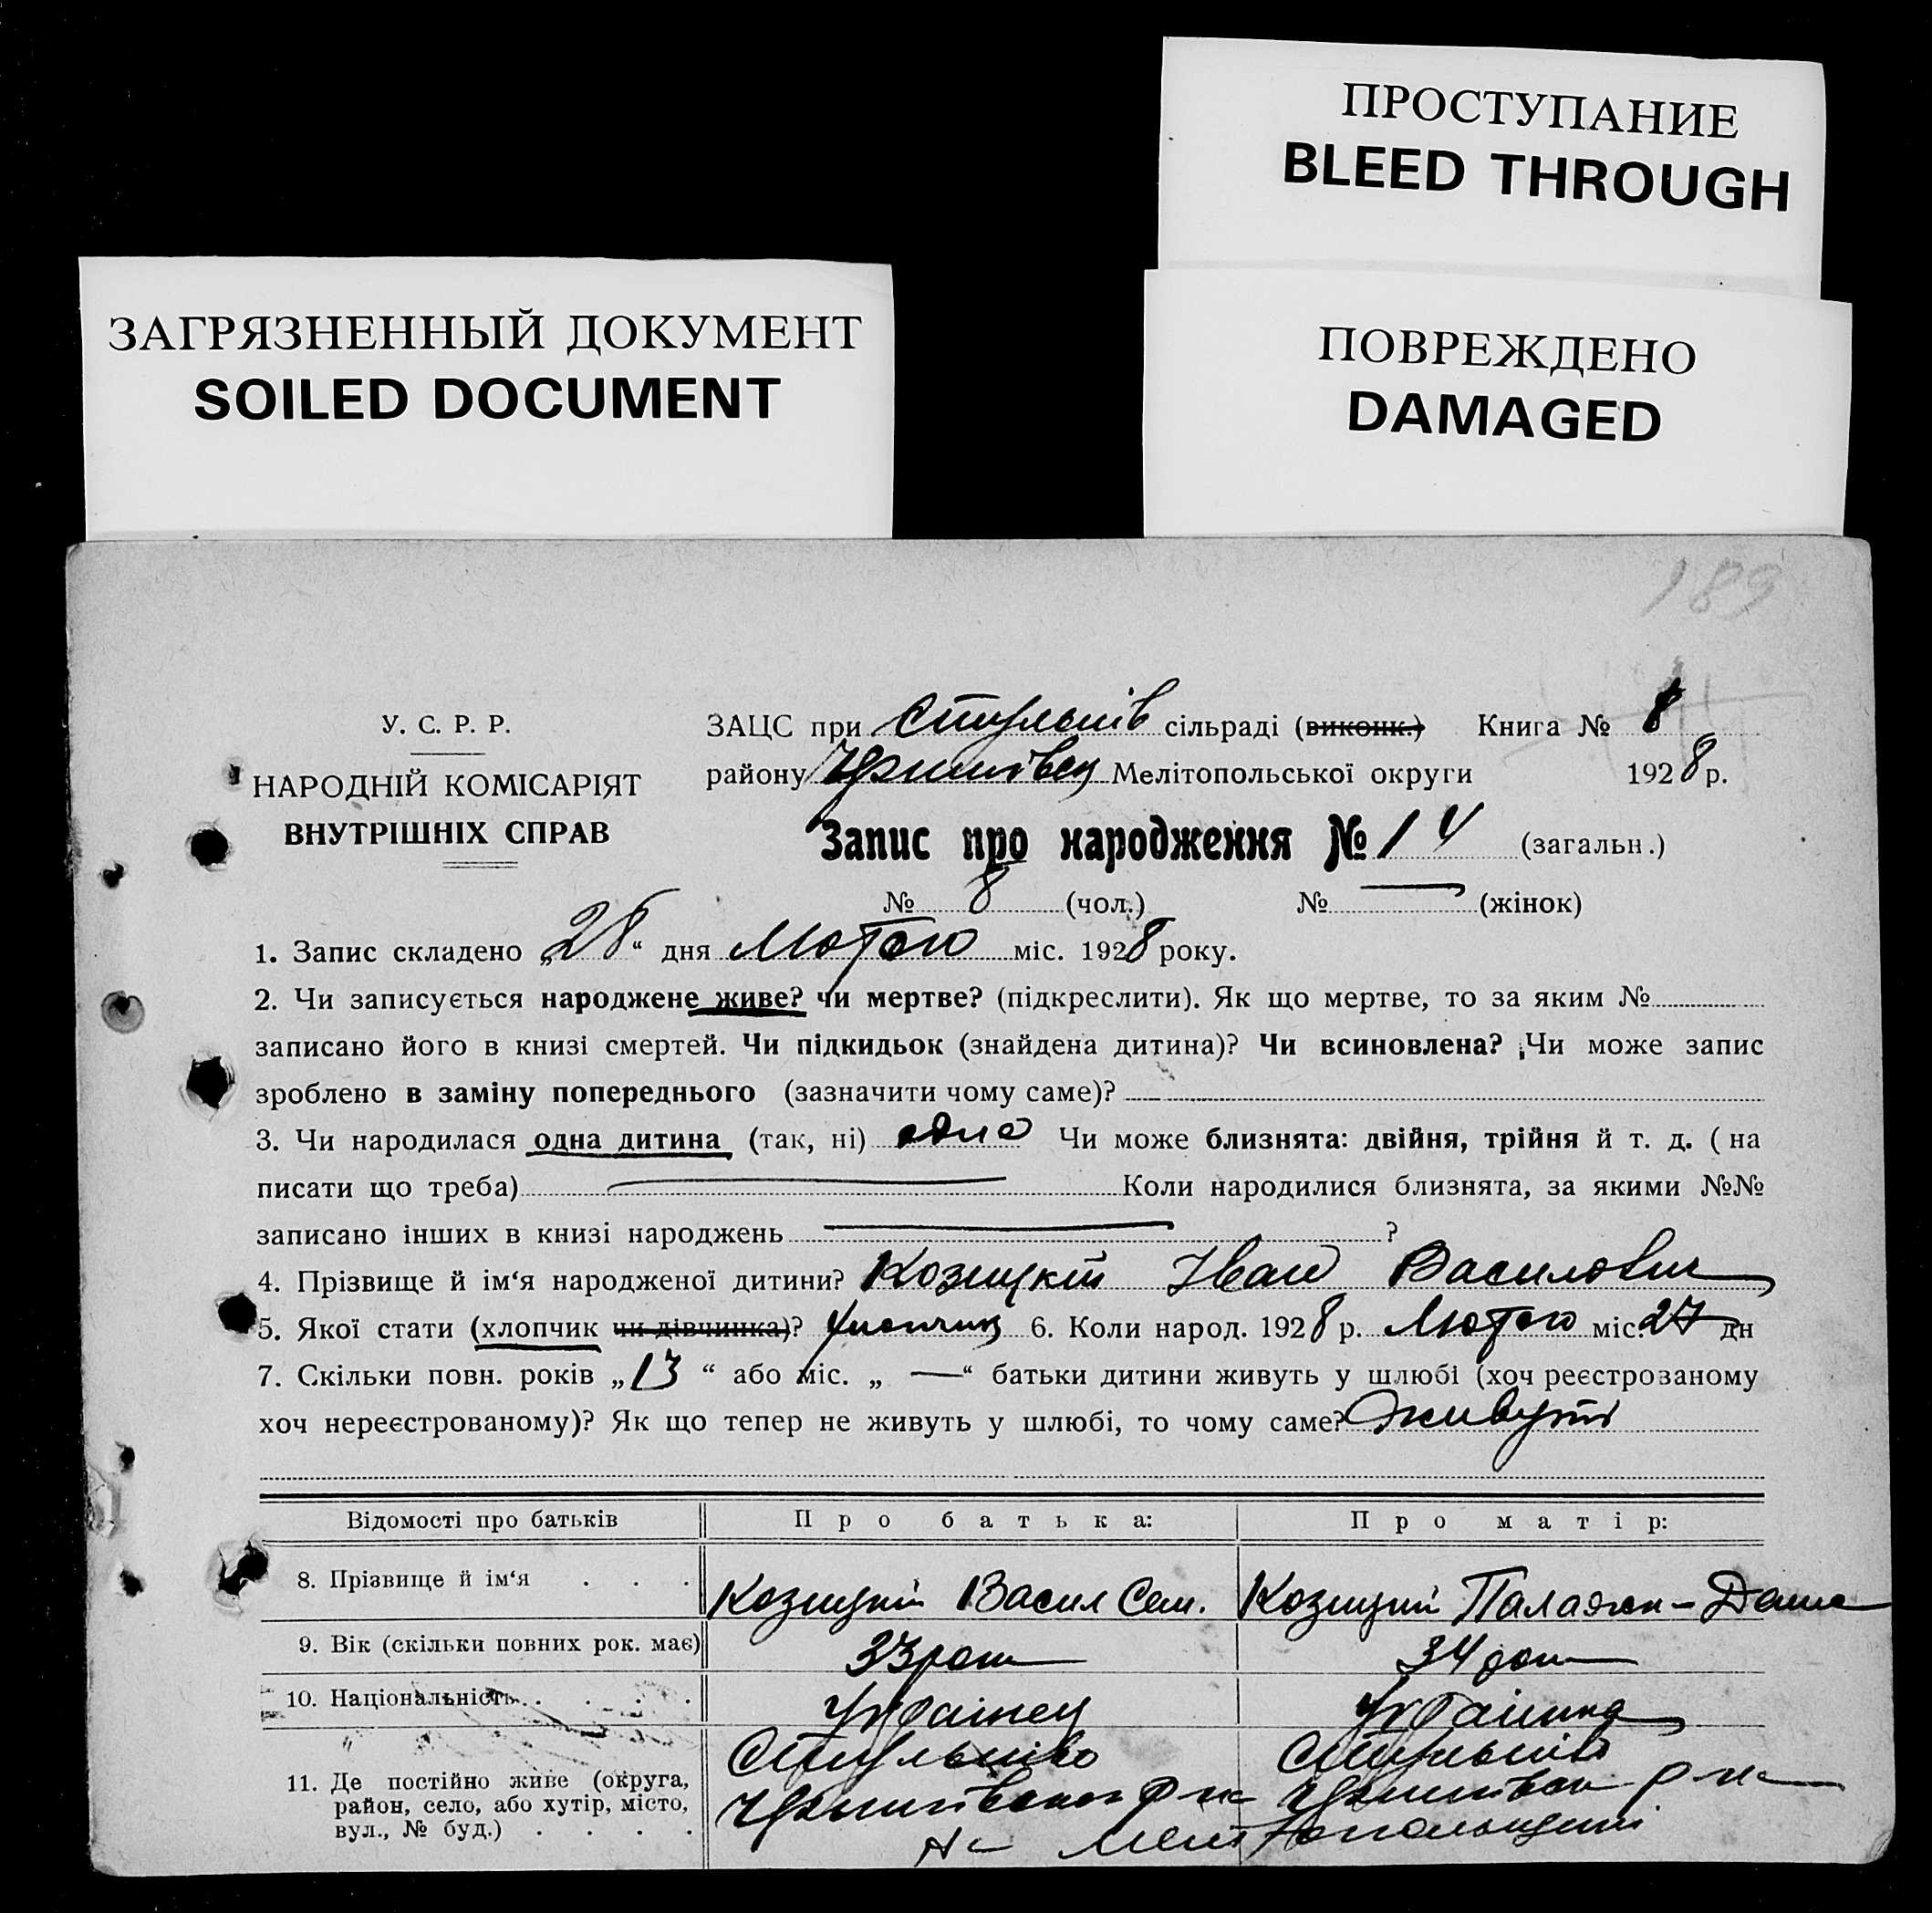 ПРОСТУПАНИЕ
BLEED THROUGH
ЗАГРЯЗНЕННЫЙ ДОКУМЕНТ
SOILED DOCUMENT
ПОВРЕЖДЕНО
DAMAGED
189
У. С. Р. Р.
НАРОДНІЙ КОМІСАРІЯТ
ВНУТРІШНІХ СПРАВ
ЗАЦС при сільраді (виконк.) Книга № 8
району Мелітопольської округи 1928 р.
Запис про народження № 14 (загальн.)
№ 8 (чол.) № — (жінок)
1. Запис складено „28“ дня Лютого міс. 1928 року.
2. Чи записується народжене живе? чи мертве? (підкреслити). Як що мертве, то за яким №
записано його в книзі смертей. Чи підкидьок (знайдена дитина)? Чи всиновлена? Чи може запис
зроблено в заміну попереднього (зазначити чому саме)?
3. Чи народилася одна дитина (так, ні) одна Чи може близнята: двійня, трійня й т. д. (на
писати що треба) — Коли народилися близнята, за якими №№
записано інших в книзі народжень — ?
4. Прізвище й ім‘я народженої дитини? Козицкій Іван Василович
5. Якої стати (хлопчик чи дівчинка)? хлопчик 6. Коли народ. 1928 р. Лютого міс. 27 дн
7. Скільки повн. років „13“ або міс. „ — “ батьки дитини живуть у шлюбі (хоч реєстрованому
хоч нереєстрованому)? Як що тепер не живуть у шлюбі, то чому саме? живуть
Відомості про батьків Про батька: Про матір:
8. Прізвище й ім‘я . . . Козицкій Васил Сем. Козицкій
9. Вік (скільки повних рок. має) 33 34
10. Національність . . . . Українец Українка
11. Де постійно живе (округа,
район, село, або хутір, місто,
вул., № буд.) . . . .